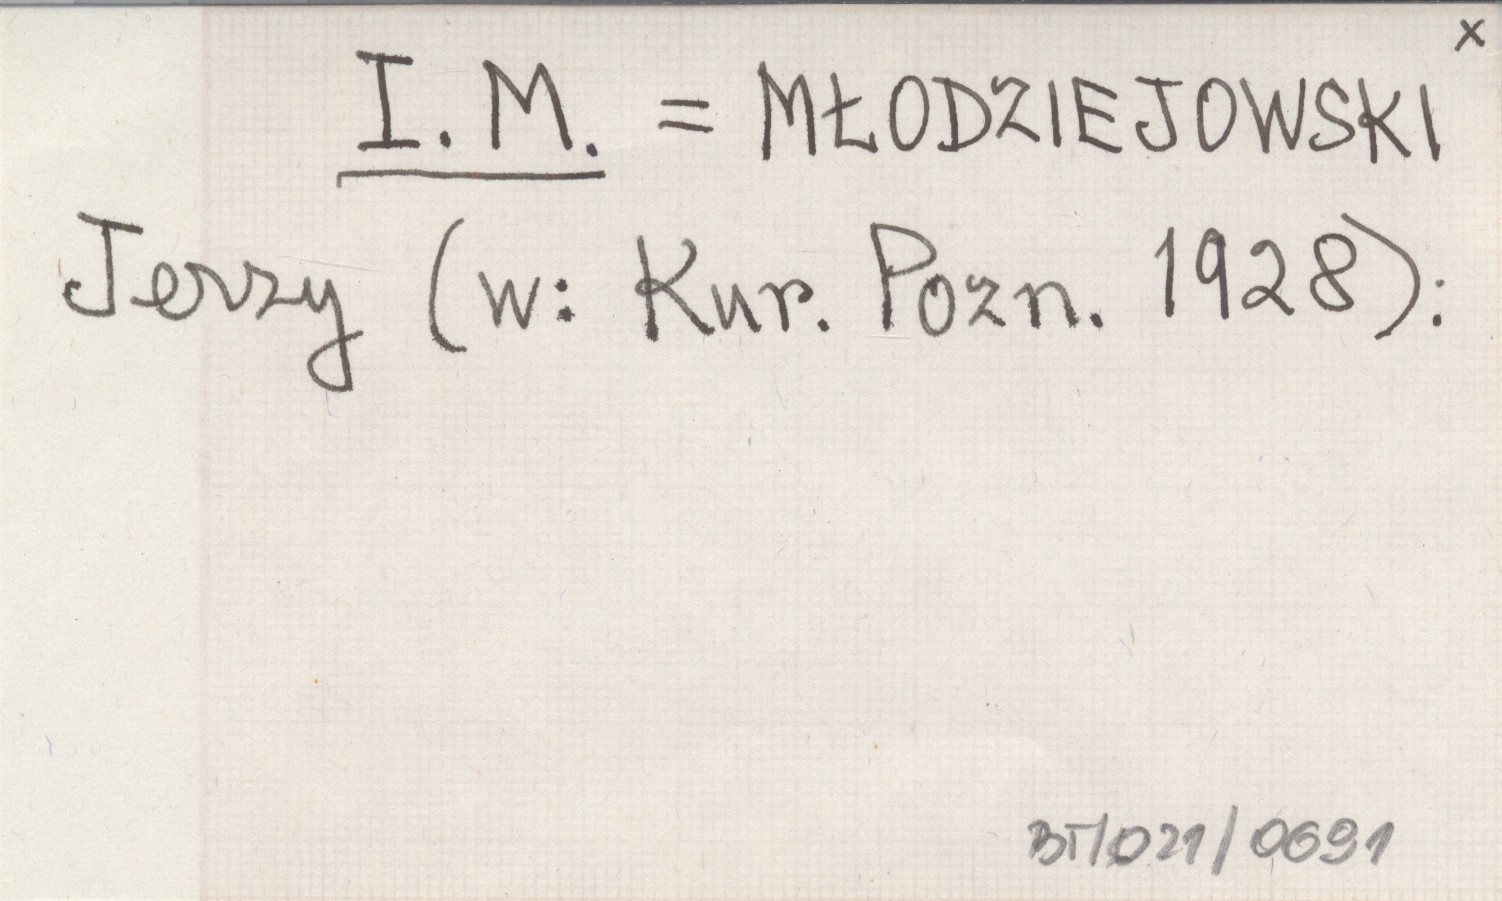 x
I. M. = MŁODZIEJOWSKI
Jerzy (w: Kur. Pozn. 1928):
BT/021/0691